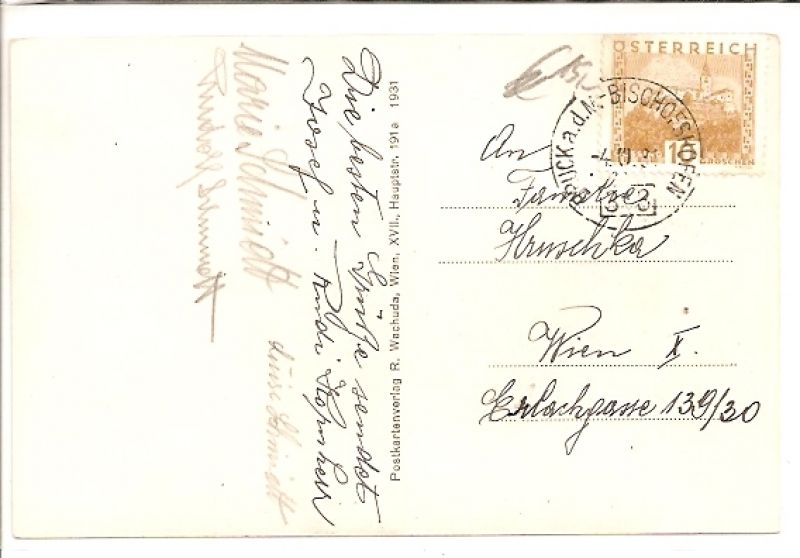 Die besten Grüße sendet
Josef u. Rudi
Marie Schmidt
Rudolf Schmidt
Luise Schmidt
Postkartenverlag R. Wachuda, Wien, XVII., Hauptstr. 191a 1931
ÖSTERREICH
10
GROSCHEN
BRUCK a.d.M.-BISCHOFSHOFEN
An
Familie
Hruschka
Wien X.
Erlachgasse 139/30